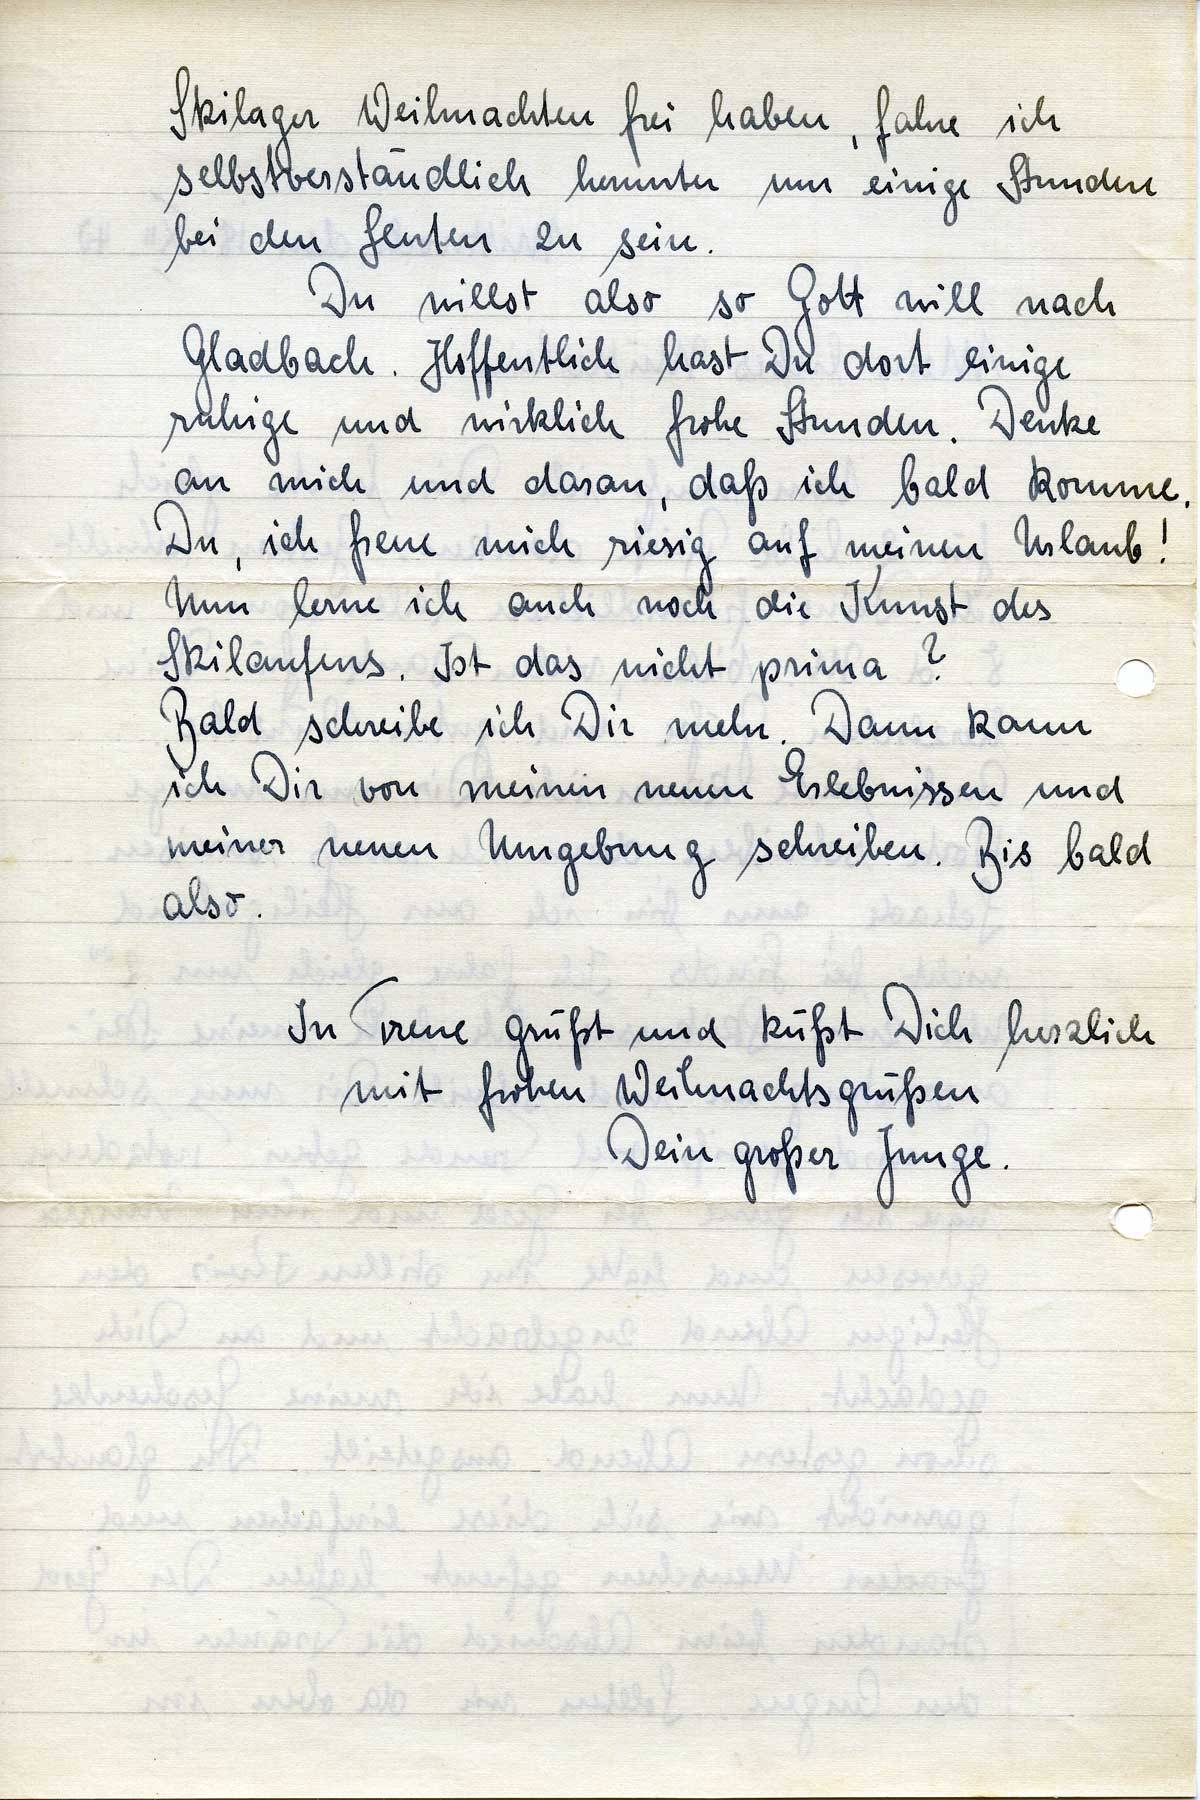 Skilager Weihnachten frei haben, fahre ich
selbstverständlich herunter um einige Stunden
bei den Leuten zu sein.
Du willst also so Gott will nach
Gladbach. Hoffentlich hast Du dort einige
ruhige und wirklich frohe Stunden. Denke
an mich und daran, daß ich bald komme.
Du, ich freue mich riesig auf meinen Urlaub!
Nun lerne ich auch noch die Kunst des
Skilaufens. Ist das nicht prima?
Bald schreibe ich Dir mehr. Dann kann
ich Dir von meinen neuen Erlebnissen und
meiner neuen Umgebung schreiben. Bis bald
also.
In Treue grüßt und küßt Dich herzlich
mit frohen Weihnachtsgrüßen
Dein großer Junge.